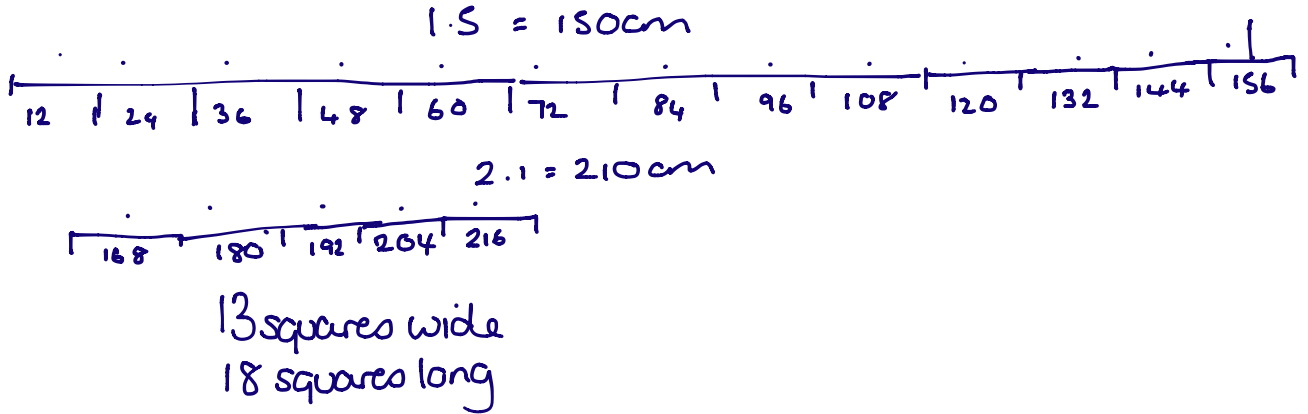 1.5 = 150cm
12 24 36 48 60 72 84 96 108 120 132 144 156
2.1 = 210cm
168 180 192 204 216
13 squares wide
18 squares long